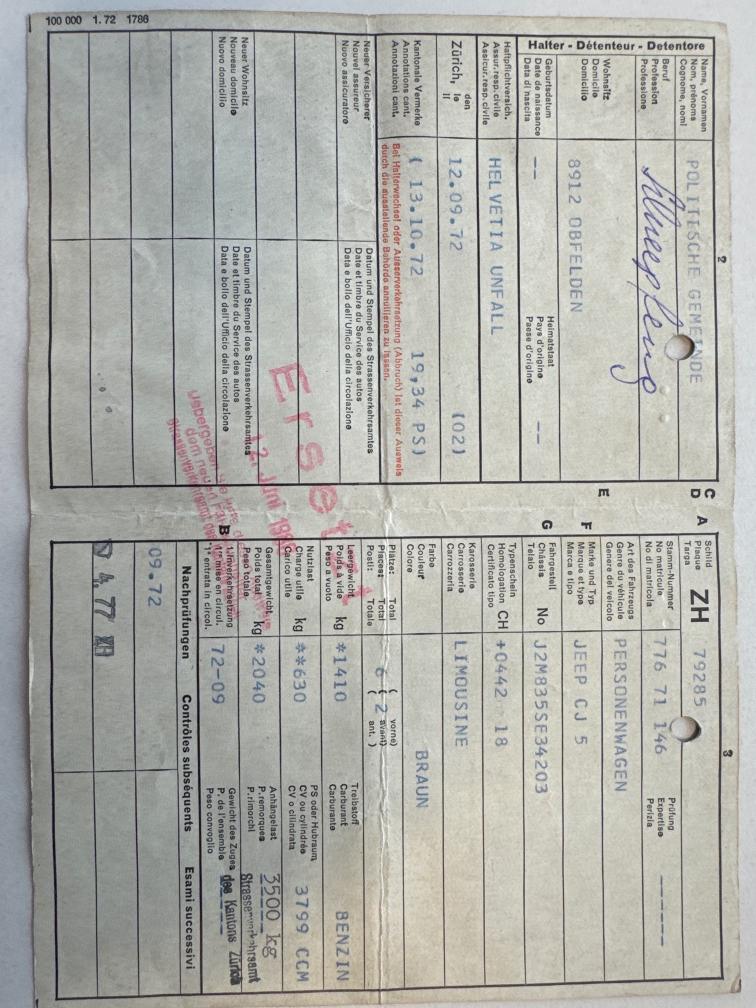 100 000 1.72 1786
2
Halter - Détenteur - Detentore
Name, Vornamen
Nom, prénoms
Cognome, nomi
POLITISCHE GEMEINDE
Beruf
Profession
Professione
Wohnsitz
Domicile
Domicilio
8912 OBFELDEN
Geburtsdatum
Date de naissance
Data di nascita
--
Heimatstaat
Pays d'origine
Paese d'origine
--
Haftpflichtversich.
Assur. resp. civile
Assicur. resp. civile
HELVETIA UNFALL
Zürich,
den
le
il
12.09.72 (02)
Kantonale Vermerke
Annotations cant.
Annotazioni cant.
( 13.10.72 19,34 PS)
Bei Halterwechsel oder Ausserverkehrsetzung (Abbruch) ist dieser Ausweis
durch die ausstellende Behörde annullieren zu lassen.
Neuer Versicherer
Nouvel assureur
Nuovo assicuratore
Datum und Stempel des Strassenverkehrsamtes
Date et timbre du Service des autos
Data e bollo dell'Ufficio della circolazione
Ersetzt
12. Juni
Neuer Wohnsitz
Nouveau domicile
Nuovo domicilio
Datum und Stempel des Strassenverkehrsamtes
Date et timbre du Service des autos
Data e bollo dell'Ufficio della circolazione
3
A
Schild
Plaque
Targa
ZH 79285
C
D
Stamm-Nummer
No matricule
No di matricola
776 71 146
Prüfung
Expertise
Perizia
------
E
Art des Fahrzeugs
Genre du véhicule
Genere del veicolo
PERSONENWAGEN
F
Marke und Typ
Marque et type
Marca e tipo
JEEP CJ 5
G
Fahrgestell
Châssis
Telaio
No
J2M835SE34203
Typenschein
Homologation
Certificato tipo
CH
+0442 18
Karosserie
Carrosserie
Carrozzeria
LIMOUSINE
Farbe
Couleur
Colore
BRAUN
Plätze: Total
Places: Total
Posti: Totale
6
( vorne)
( 2 avant)
( ant. )
Leergewicht
Poids à vide
Peso a vuoto
kg
*1410
Treibstoff
Carburant
Carburante
BENZIN
Nutzlast
Charge utile
Carico utile
kg
**630
PS oder Hubraum
CV ou cylindrée
CV o cilindrata
3799 CCM
Gesamtgewicht
Poids total
Peso totale
kg
*2040
Anhängelast
P. remorques
P. rimorchi
3500 kg
B
1. Inverkehrsetzung
1re mise en circul.
1a entrata in circol.
72-09
Gewicht des Zuges
P. de l'ensemble
Peso convoglio
Strassenverkehrsamt
des Kantons Zürich
Nachprüfungen Contrôles subséquents Esami successivi
09.72
4. 77